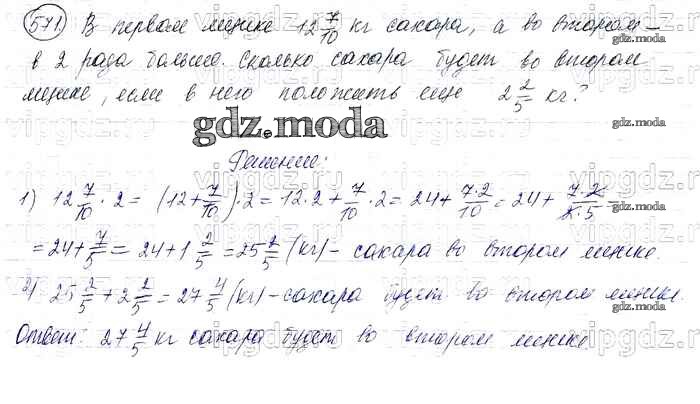 571. В первом мешке 12 7/10 кг сахара, а во втором –
в 2 раза больше. Сколько сахара будет во втором
мешке, если в него положить еще 2 2/5 кг?
gdz.moda
Решение:
1) 12 7/10 · 2 = (12 + 7/10) · 2 = 12 · 2 + 7/10 · 2 = 24 + 7·2/10 = 24 + 7·2/2·5 =
= 24 + 7/5 = 24 + 1 2/5 = 25 2/5 (кг) – сахара во втором мешке.
2) 25 2/5 + 2 2/5 = 27 4/5 (кг) – сахара будет во втором мешке.
Ответ: 27 4/5 кг сахара будет во втором мешке.
vipgdz.ru